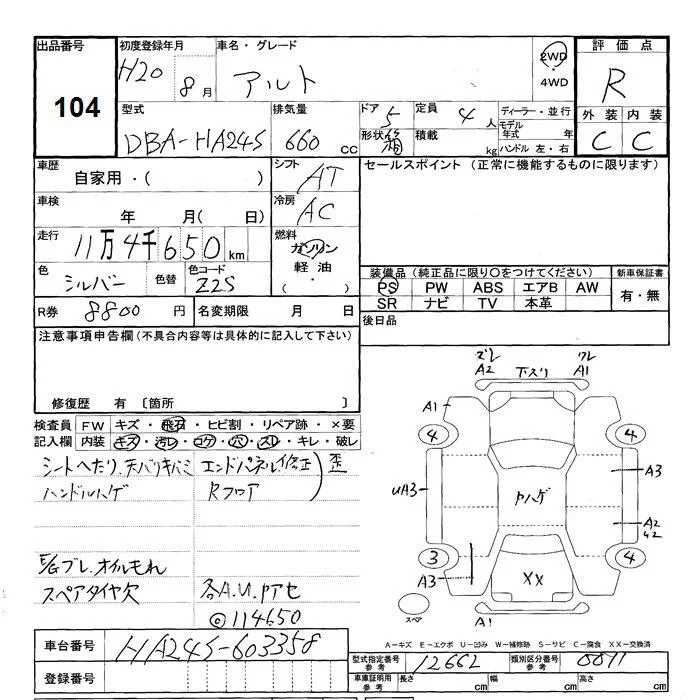 出品番号
104
初度登録年月
H20 8月
車名・グレード
アルト
2WD
・
4WD
評価点
R
外装 内装
C C
型式
DBA-HA24S
排気量
660 cc
ドア 5
形状 箱
定員 4人
積載 kg
ディーラー・並行
モデル年式 年
ハンドル 左・右
車歴
自家用・( )
シフト
AT
セールスポイント (正常に機能するものに限ります)
車検
年 月( 日)
冷房
AC
走行
11万4千650km
燃料
ガソリン
軽油
( ・ )
色
シルバー
色替
色コード
Z2S
装備品 (純正品に限り○をつけてください)
新車保証書
PS PW ABS エアB AW
SR ナビ TV 本革
有・無
R券 8800円
名変期限 月 日
後日品
注意事項申告欄(不具合内容等は具体的に記入して下さい)
修復歴 有 〔箇所 〕
検査員記入欄
FW キズ・飛石・ヒビ割・リペア跡・×要
内装 キズ・汚レ・コゲ・穴・スレ・キレ・破レ
シートへたり、天バリキバミ
ハンドルハゲ
エンドパネル修正
Rフロア
歪
E/Gブレ、オイルもれ
スペアタイヤ欠
各A.U.Pアセ
©114650
ズレ
A2
下スリ
ワレ
A1
A1
4 4
UA3
Pハゲ
A3
A2
3 4
A3
XX
スペア
A1
A-キズ E-エクボ U-凹み W-補修跡 S-サビ C-腐食 XX-交換済
車台番号
HA24S-603358
登録番号
型式指定番号
参考
12662
類別区分番号
参考
車庫証明用
参考
長さ cm
幅 cm
高さ cm